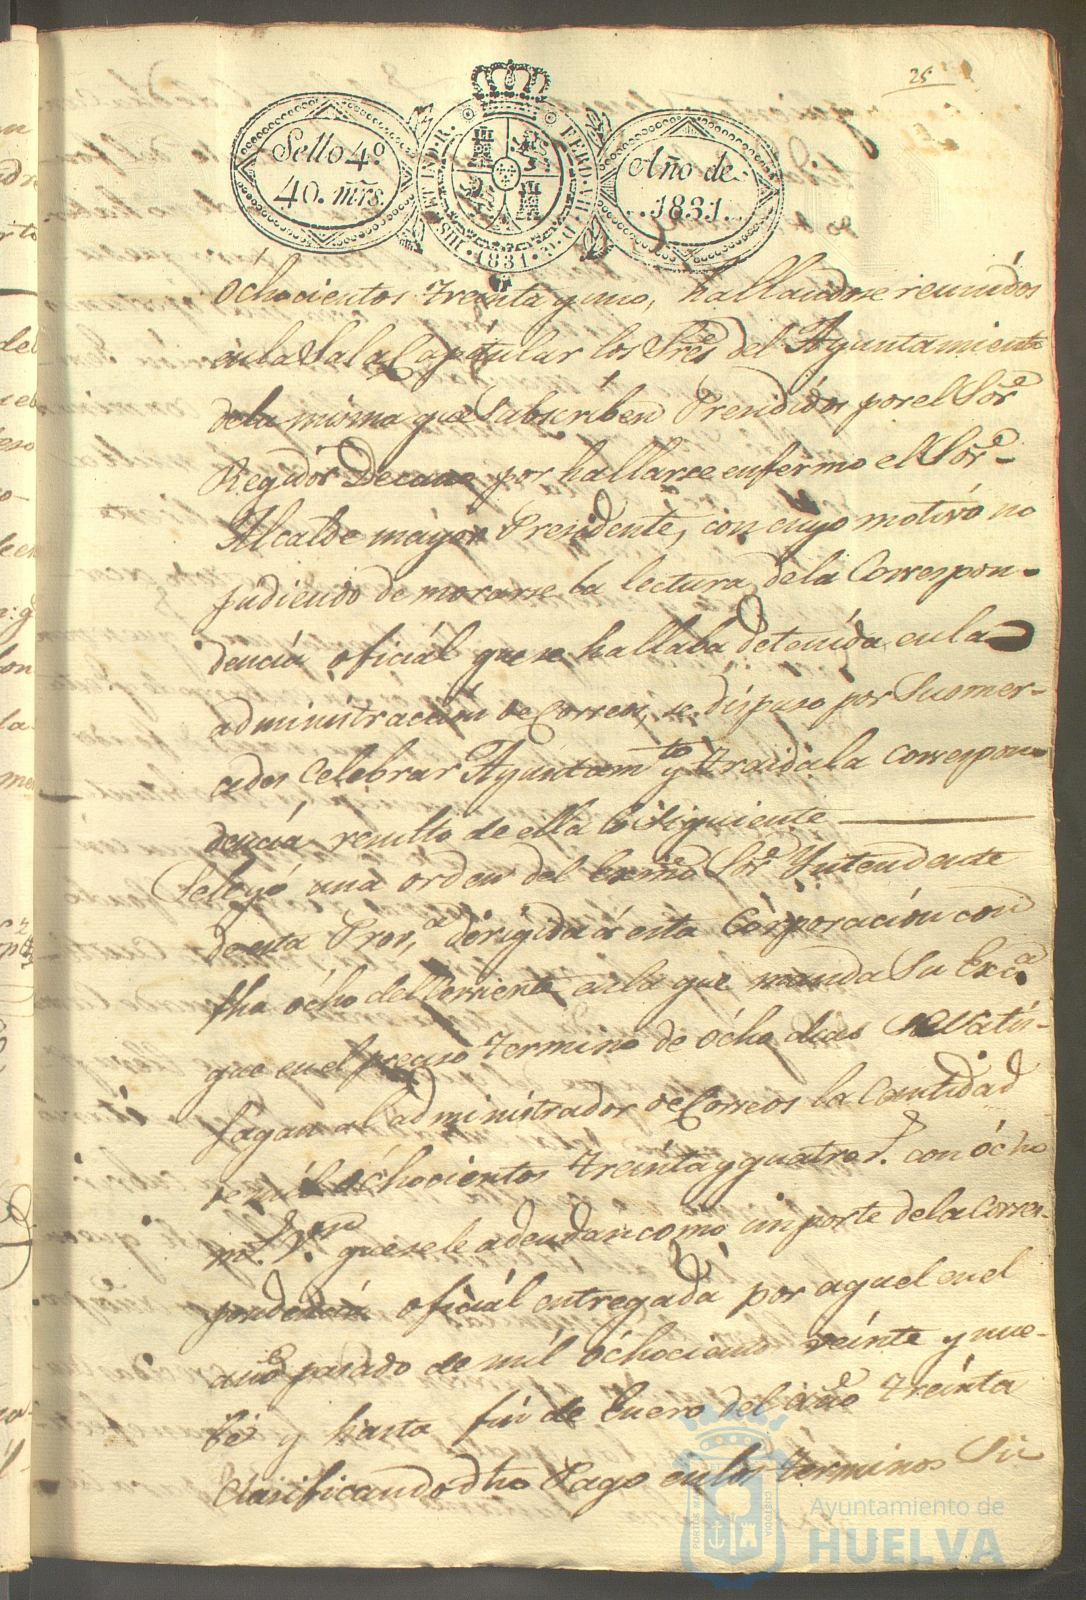 25
Sello 4º
40. mrs.
HIS. ET IND. R. FERD. VII. D. G. 1831.
Año de
1831.
óchocientos treinta y uno, hallandose reunidos
en la Sala Capitular los Sres del Ayuntamiento
de la misma que Subscriben Presididos por el Sor
Regidor Decano por hallarse enfermo el Sor
Alcalde mayor Presidente, con cuyo motivo no
pudiendo demorarse la lectura de la Correspon-
dencia oficial que se hallaba detenida en la
administracion de Correos, se dispuso por Sus mer-
cedes Celebrar Ayuntamto y traida la correspon
dencia resulto de ella lo Siguiente
Se leyó una orden del Exmo Sor Yntendente
de esta Prova dirigida á esta Corporacion con
fha ócho del Corriente en la que manda Su Exca
que en el preciso termino de ócho dias Se Satis-
fagan al administrador de Correos la Cantidad
de mil óchocientos treinta y quatro r. con ócho
mrs. von que se le adeudan como importe de la Corres-
pondencia oficial entregada por aquel en el
año pasado de mil óchocientos veinte y nue-
be y hasta fin de Enero del año treinta
Clasificando dho Pago en los terminos Si
Ayuntamiento de
HUELVA